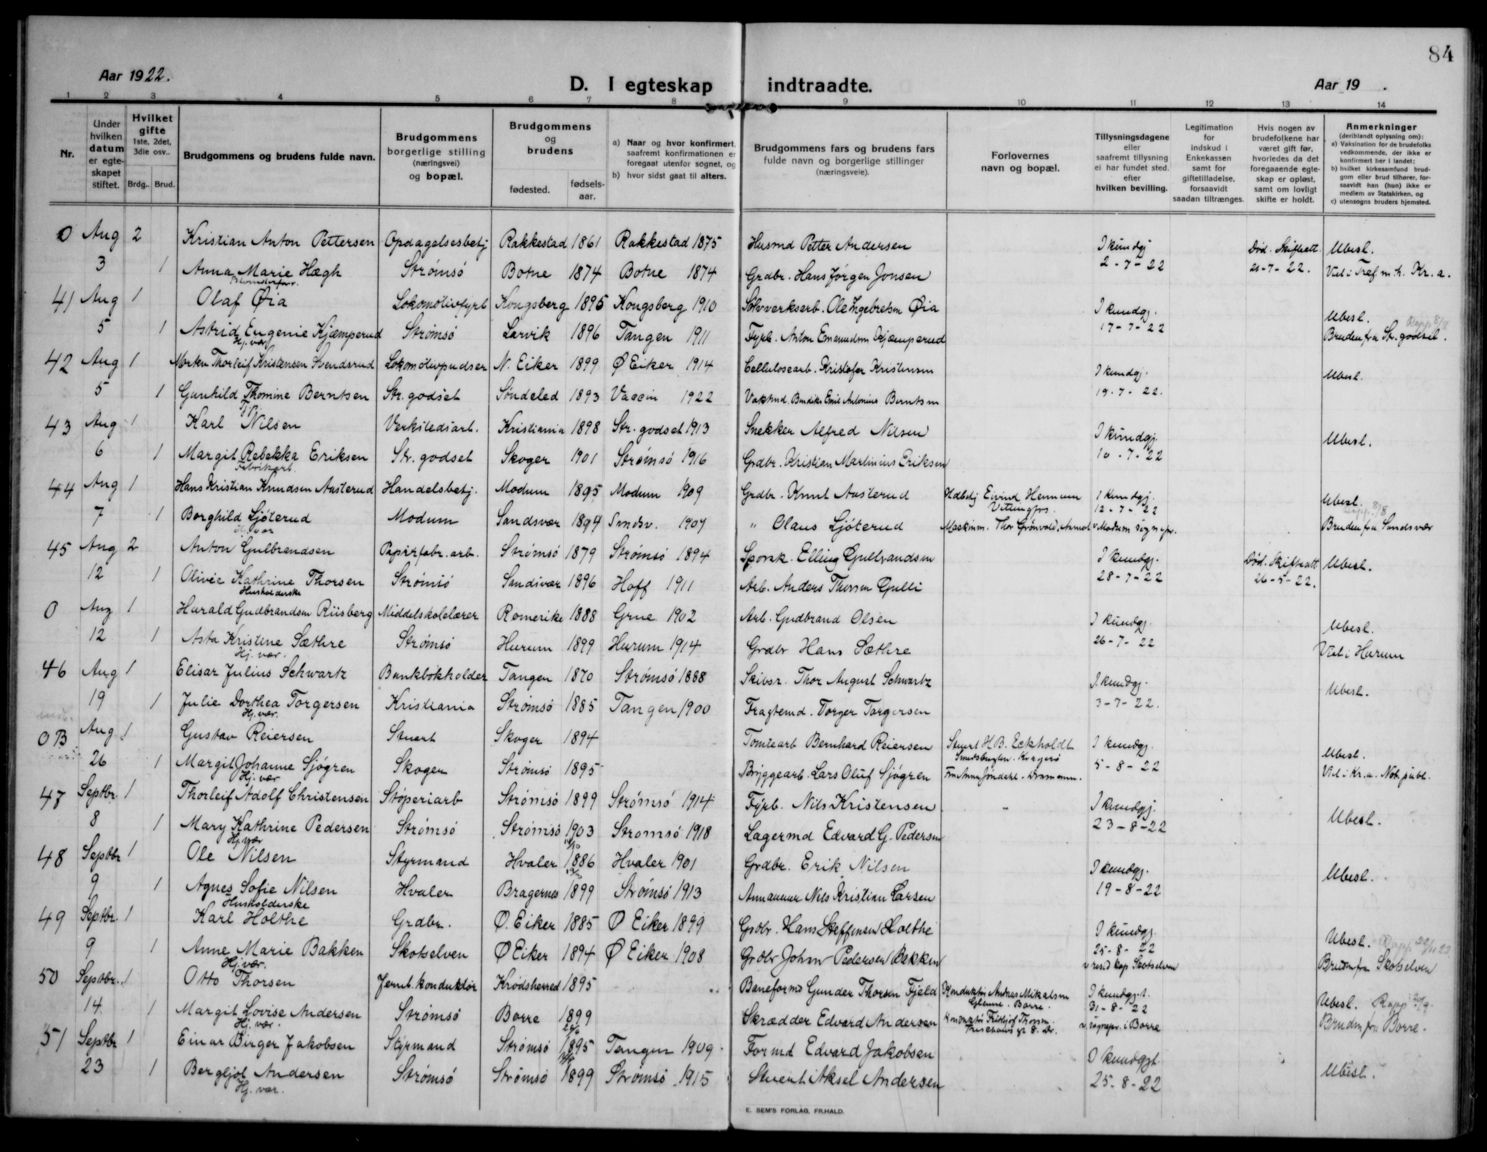 84
Aar 1922.
D. I egteskap indtraadte.
Aar 19 .
1 2 3 4 5 6 7 8 9 10 11 12 13 14
Nr.
Under hvilken datum er egteskapet stiftet.
Hvilket gifte 1ste, 2det, 3die osv.
Brdg. Brud.
Brudgommens og brudens fulde navn.
Brudgommens borgerlige stilling (næringsvei) og bopæl.
Brudgommens og brudens
fødested. fødselsaar.
a) Naar og hvor konfirmert, saafremt konfirmationen er foregaat utenfor sognet, og
b) hvor sidst gaat til alters.
Brudgommens fars og brudens fars fulde navn og borgerlige stillinger (næringsveie).
Forlovernes navn og bopæl.
Tillysningsdagene eller saafremt tillysning ei har fundet sted, efter hvilken bevilling.
Legitimation for indskud i Enkekassen samt for giftetilladelse, forsaavidt saadan tiltrænges.
Hvis nogen av brudefolkene har været gift før, hvorledes da det foregaaende egteskap er opløst, samt om lovlig skifte er holdt.
Anmerkninger (deriblandt oplysning om):
a) Vaksination for de brudefolks vedkommende, der ikke er konfirmert her i landet;
b) hvilket kirkesamfund brudgom eller brud tilhører, forsaavidt han (hun) ikke er medlem av Statskirken, og
c) utensogns bruders hjemsted.
0 Aug 2 Kristian Anton Pettersen Opdagelsesbetj Rakkestad 1861 Rakkestad 1875 Husmd Petter Andersen I kundgj Død. Skifteatt Ubesl.
3 1 Anna Marie Hægh Strømsö Botne 1874 Botne 1874 Grdbr. Hans Jørgen Jonsen 2-7-22 21-7-22. Viel i Trefm.k. Kr.a.
41 Aug 1 Olaf Øia Lokomotivfyrb Kongsberg 1895 Kongsberg 1910 Ole Ingebretsen Øia I kundgj. Ubesl.
5 1 Astrid Eugenie Kjæmperud Strømsö Larvik 1896 Tangen 1911 Fyrb. Anton Emanuelsen Kjæmperud 17-7-22 Bruden fra Str.godset.
Hj. vær
42 Aug 1 Morten Thorleif Kristensen Svendsrud Lokomotivpudser N. Eiker 1899 Ø Eiker 1914 Cellulosearb. Kristofer Kristensen I kundgj. Ubesl.
5 1 Gunhild Thomine Berntsen Str. godset Søndeled 1893 1922 Emil Antonius Berntsen 19-7-22.
43 Aug 1 Karl Nilsen Verkstedsarb. Kristiania 1898 Str. godset 1913 Snekker Alfred Nilsen I kundgj. Ubesl.
6 1 Margit Rebekka Eriksen Str. godset Skoger 1901 Strømsö 1916 Grdbr. Kristian Martinius Eriksen 10-7-22
Fabrikarb.
44 Aug 1 Hans Kristian Knudsen Aasterud Handelsbetj. Modum 1895 Modum 1909 Grdbr. Knut Aasterud Hdlbtj Eivind Hennum I kundgj. Ubesl.
7 1 Borghild Ljöterud Modum Sandsvær 1894 Sandsv. 1907 " Olaus Ljöterud Maskinm. Thor Grønvold, 12-7-22 Bruden fra Sandsvær
45 Aug 2 Anton Gulbrandsen Papirfabr.arb. Strømsö 1879 Strømsö 1894 Sporsk. Elling Gulbrandsen I kundgj. Død. Skifteatt Ubesl.
12 1 Olivie Kathrine Thorsen Strømsö Sandsvær 1896 Hoff 1911 Arb. Anders Thorsen Gulli 28-7-22 26-5-22.
Husholderske
0 Aug 1 Harald Gudbrandsen Riisberg Middelskolelærer Romerike 1888 Grue 1902 Arb. Gudbrand Olsen I kundgj. Ubesl.
12 1 Asta Kristine Sæthre Strømsö Hurum 1899 Hurum 1914 Grdbr Hans Sæthre 26-7-22 Viel i Hurum
Hj. vær.
46 Aug 1 Elisar Julius Schwartz Bankbokholder Tangen 1870 Strømsö 1888 Skibsr. Thor August Schwartz I kundgj. Ubesl.
19 1 Julie Dorthea Torgersen Kristiania Strømsö 1885 Tangen 1900 Fragtemd. Torger Torgersen 3-7-22.
Hj. vær.
0B Aug 1 Gustav Reiersen Stuert Skoger 1894 Tomtearb Bernhard Reiersen Stuert H.B. Eckholdt I kundgj Ubesl.
26 1 Margit Johanne Sjögren Skoger Strømsö 1895 Bryggearb. Lars Oluf Sjögren 5-8-22 Viel i Kr.a. Not.publ.
Hj. vær
47 Septbr 1 Thorleif Adolf Christensen Støperiarb Strømsö 1899 Strømsö 1914 Fyrb. Nils Kristensen I kundgj. Ubesl.
8 1 Mary Kathrine Pedersen Strømsö Strømsö 1903 Strømsö 1918 Lagermd Edvard G. Pedersen 23-8-22
Hj. vær
48 Septbr 1 Ole Nilsen Styrmand Hvaler 1886 Hvaler 1901 Grdbr. Erik Nilsen I kundgj. Ubesl.
9 1 Agnes Sofie Nilsen Hvaler Bragernes 1899 Strømsö 1913 Nils Kristian Larsen 19-8-22
Husholderske
49 Septbr. 1 Karl Holthe Grdbr. Ø. Eiker 1885 Ø Eiker 1899 Grdbr. Hans Steffensen Holthe I kundgj. Ubesl.
9 1 Anne Marie Bakken Skotselven Ø Eiker 1894 Ø Eiker 1908 Grdbr John Pedersen Bakken 25-8-22 Bruden fra Skotselven
Hj. vær.
50 Septbr. 1 Otto Thorsen Jernb.konduktør Krødsherred 1895 Baneform Gunder Thorsen Fjeld I kundgjt. Ubesl.
14 1 Margit Lovise Andersen Strømsö Borre 1899 Skrædder Edvard Andersen 31-8-22 Bruden fra Borre.
Hj. vær.
51 Septbr 1 Einar Birger Jakobsen Styrmand Strømsö 1895 Tangen 1909. Formd Edvard Jakobsen O kundgjt
23 1 Bergljot Andersen Strømsö Strømsö 1899 Strømsö 1915 Stuert Aksel Andersen 25-8-22 Ubesl.
Hj. vær.
E. SEM'S FORLAG, FR.HALD.